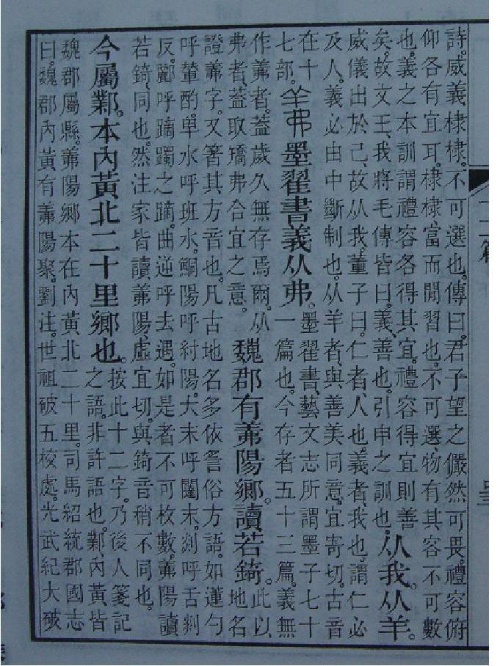 詩。威義棣棣。不可選也。傳曰。君子望之儼然可畏。禮容俯
仰各有宜耳。棣棣富而閒習也。不可選。物有其容不可數
也。義之本訓謂禮容各得其宜。禮容得宜則善
矣。故文王、我將毛傳皆曰。義、善也。引申之訓也。
从我。从羊。
威儀出於己。故从我。董子曰。仁者、人也。義者、我也。謂仁必
及人。義必由中斷制也。从羊者、與善美同意。宜寄切。古音
在十
七部。
羛墨翟書義从弗。
墨翟書、藝文志所謂墨子七十
一篇也。今存者五十三篇。義無
作羛者。蓋歲久無存焉爾。从
弗者、蓋取矯弗合宜之意。
魏郡有羛陽鄉。讀若錡。
此以
地名
證羛字。又箸其方音也。凡古地名多依俗方語。如蓮勺
呼輦酌、單水呼班水、鮦陽呼紂陽、大末呼闥末、剡呼舌剡
反、酈呼蹢躅之蹢、曲逆呼去遇。如是者不可枚數。羛陽讀
若錡。同也。然注家皆讀羛陽虛宜切。與錡音稍不同也。
今屬鄴。本內黃北二十里鄉也。
按此十二字、乃後人箋記
之語。非許語也。鄴、內黃皆
魏郡屬縣。羛陽鄉本在內黃北二十里。司馬紹統郡國志
曰。魏郡內黃有羛陽聚。劉注。世祖破五校處。光武紀大破